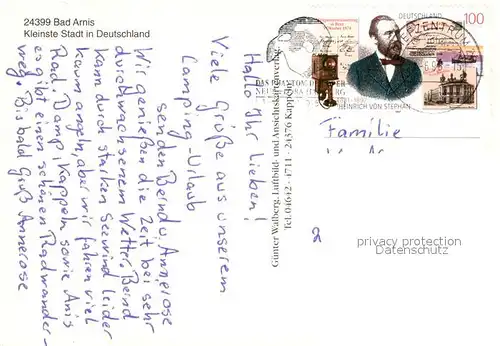 24399 Bad Arnis
Kleinste Stadt in Deutschland
Hallo Ihr Lieben!
Viele Grüße aus unserem
Camping-Urlaub
senden Bernd u. Annerose
Wir genießen die Zeit bei sehr
durchwachsenem Wetter. Bernd
kann durch starken Seewind leider
kaum angeln, aber wir fahren viel
Rad. Damp, Kappeln sowie Arnis
es gibt einen schönen Radwander-
weg. Bis bald Gruß Annerose
Günter Walberg, Luftbild- und Ansichtskartenverlag
24376 Kappeln
DEUTSCHLAND
100
HEINRICH VON STEPHAN
Familie
privacy protection
Datenschutz